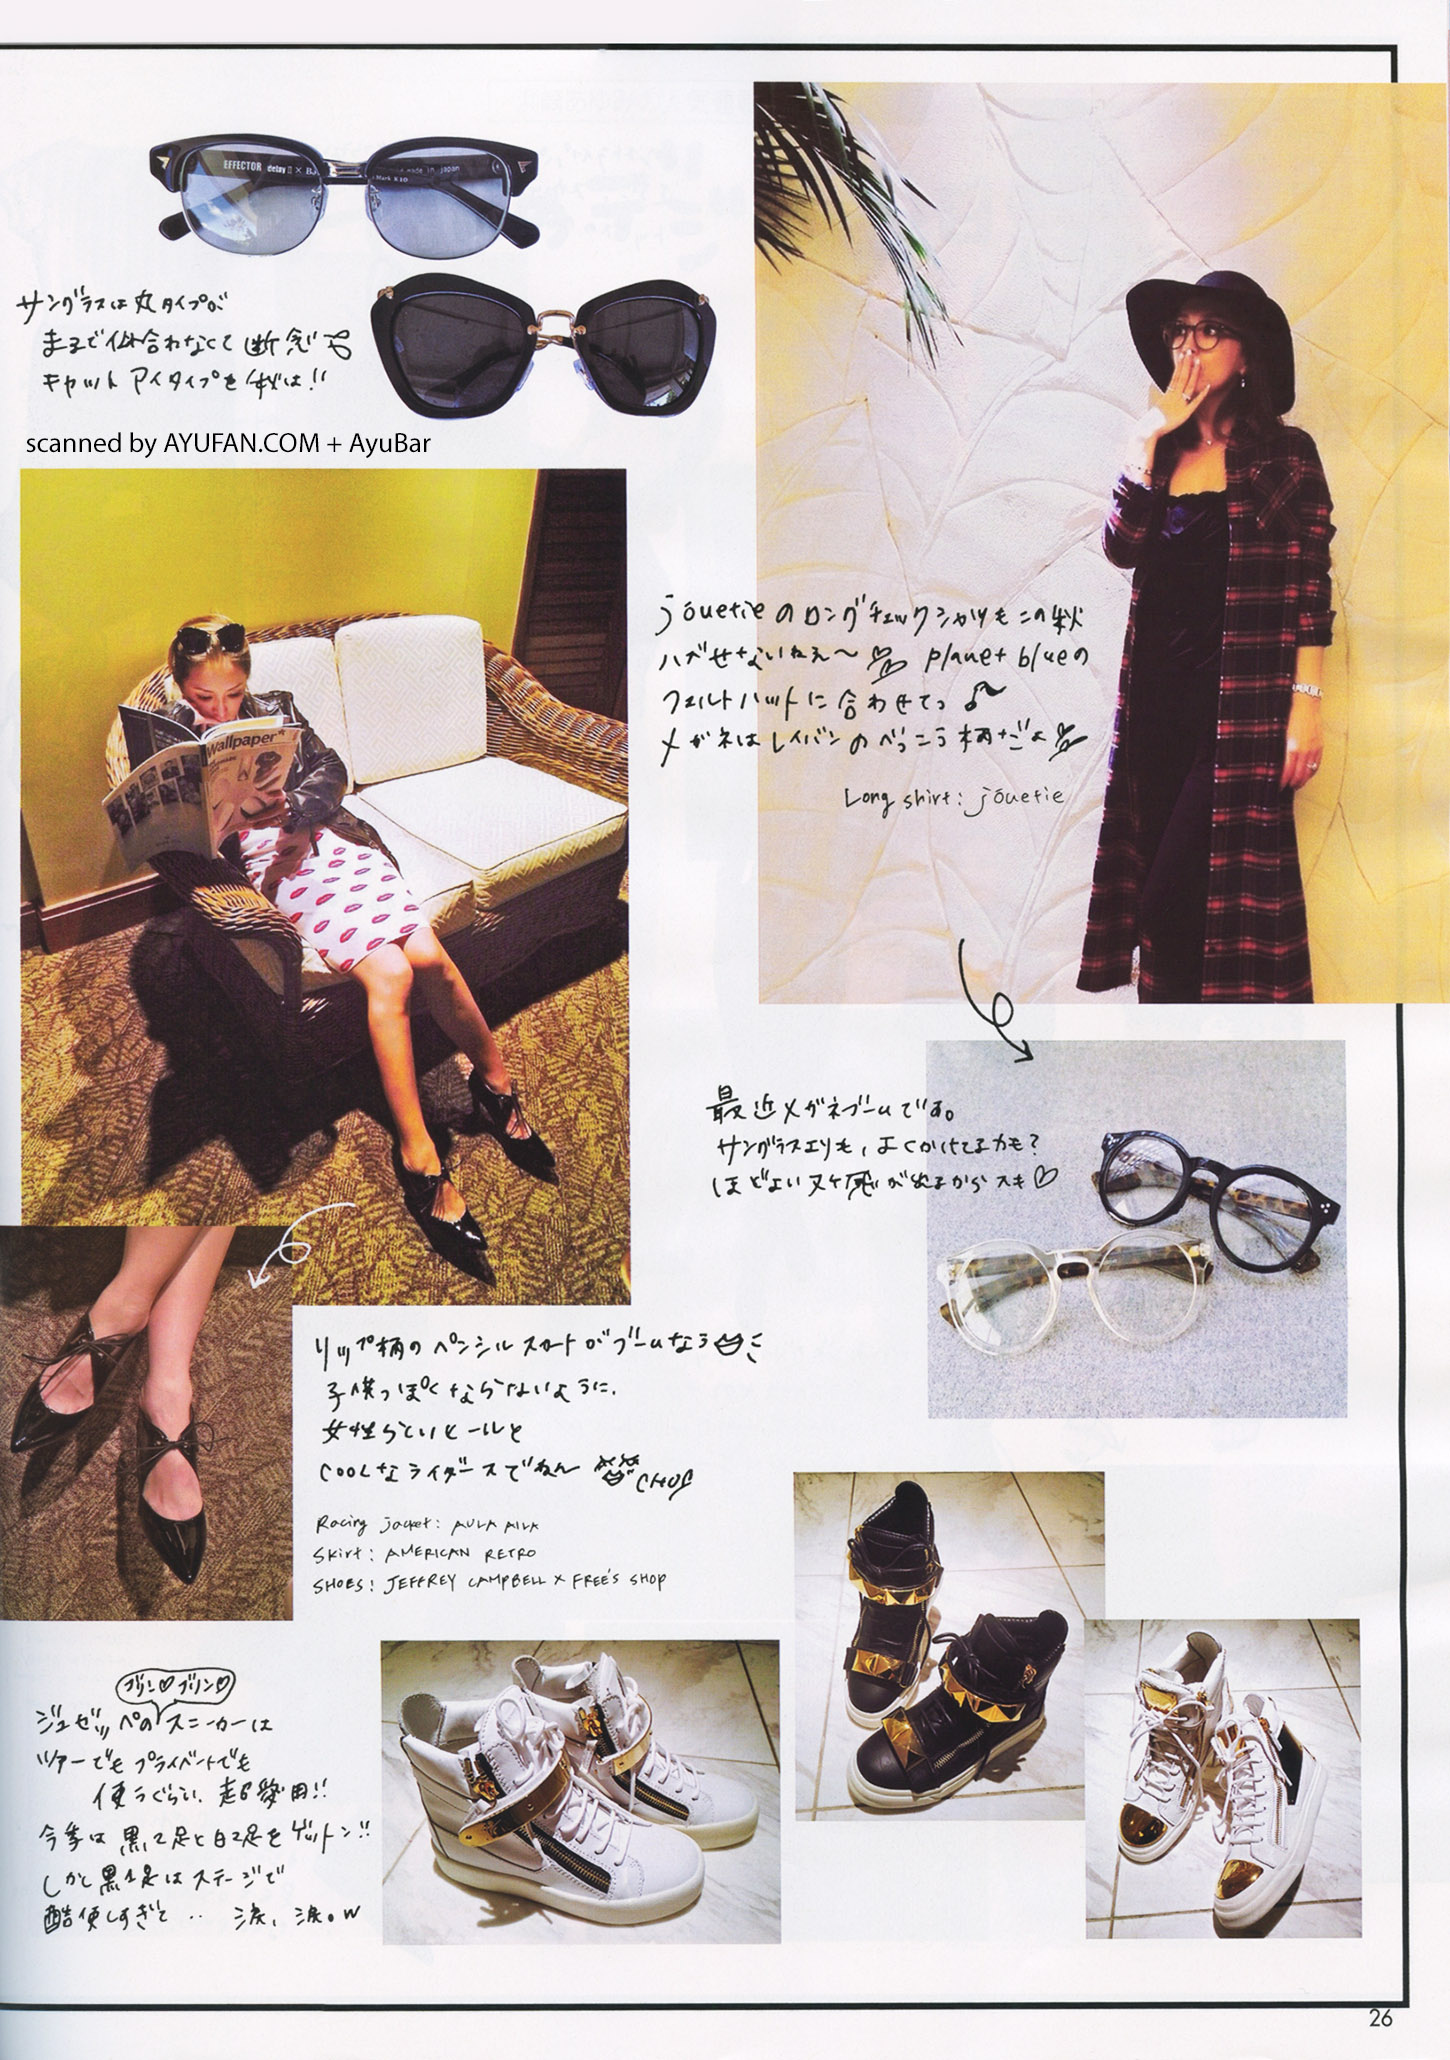 EFFECTOR delay II × B
made in japan
Mark KID
サングラスは丸タイプが
まるで似合わなくて断念
キャットアイタイプを秋は!!
scanned by AYUFAN.COM + AyuBar
Wallpaper*
jouetieのロングチェックシャツもこの秋
ハズせないねぇ〜 planet blueの
フェルトハットに合わせてっ♪
メガネはレイバンのべっこう柄だよ
Long shirt: jouetie
最近メガネブームです。
サングラスよりも、よくかけてるかも?
ほどよいヌケ感が出るからスキ♡
リップ柄のペンシルスカートがブームなう
子供っぽくならないように、
女性らしいヒールと
COOLなライダースでねん CHU!
Racing jacket: AULA AILA
Skirt: AMERICAN RETRO
SHOES: JEFFREY CAMPBELL × FREE'S SHOP
ブリン♡ブリン♡
ジュゼッペのスニーカーは
ツアーでもプライベートでも
使うぐらい、超愛用!!
今季は黒2足と白2足をゲットン!!
しかし黒1足はステージで
酷使しすぎて‥ 涙、涙。w
26